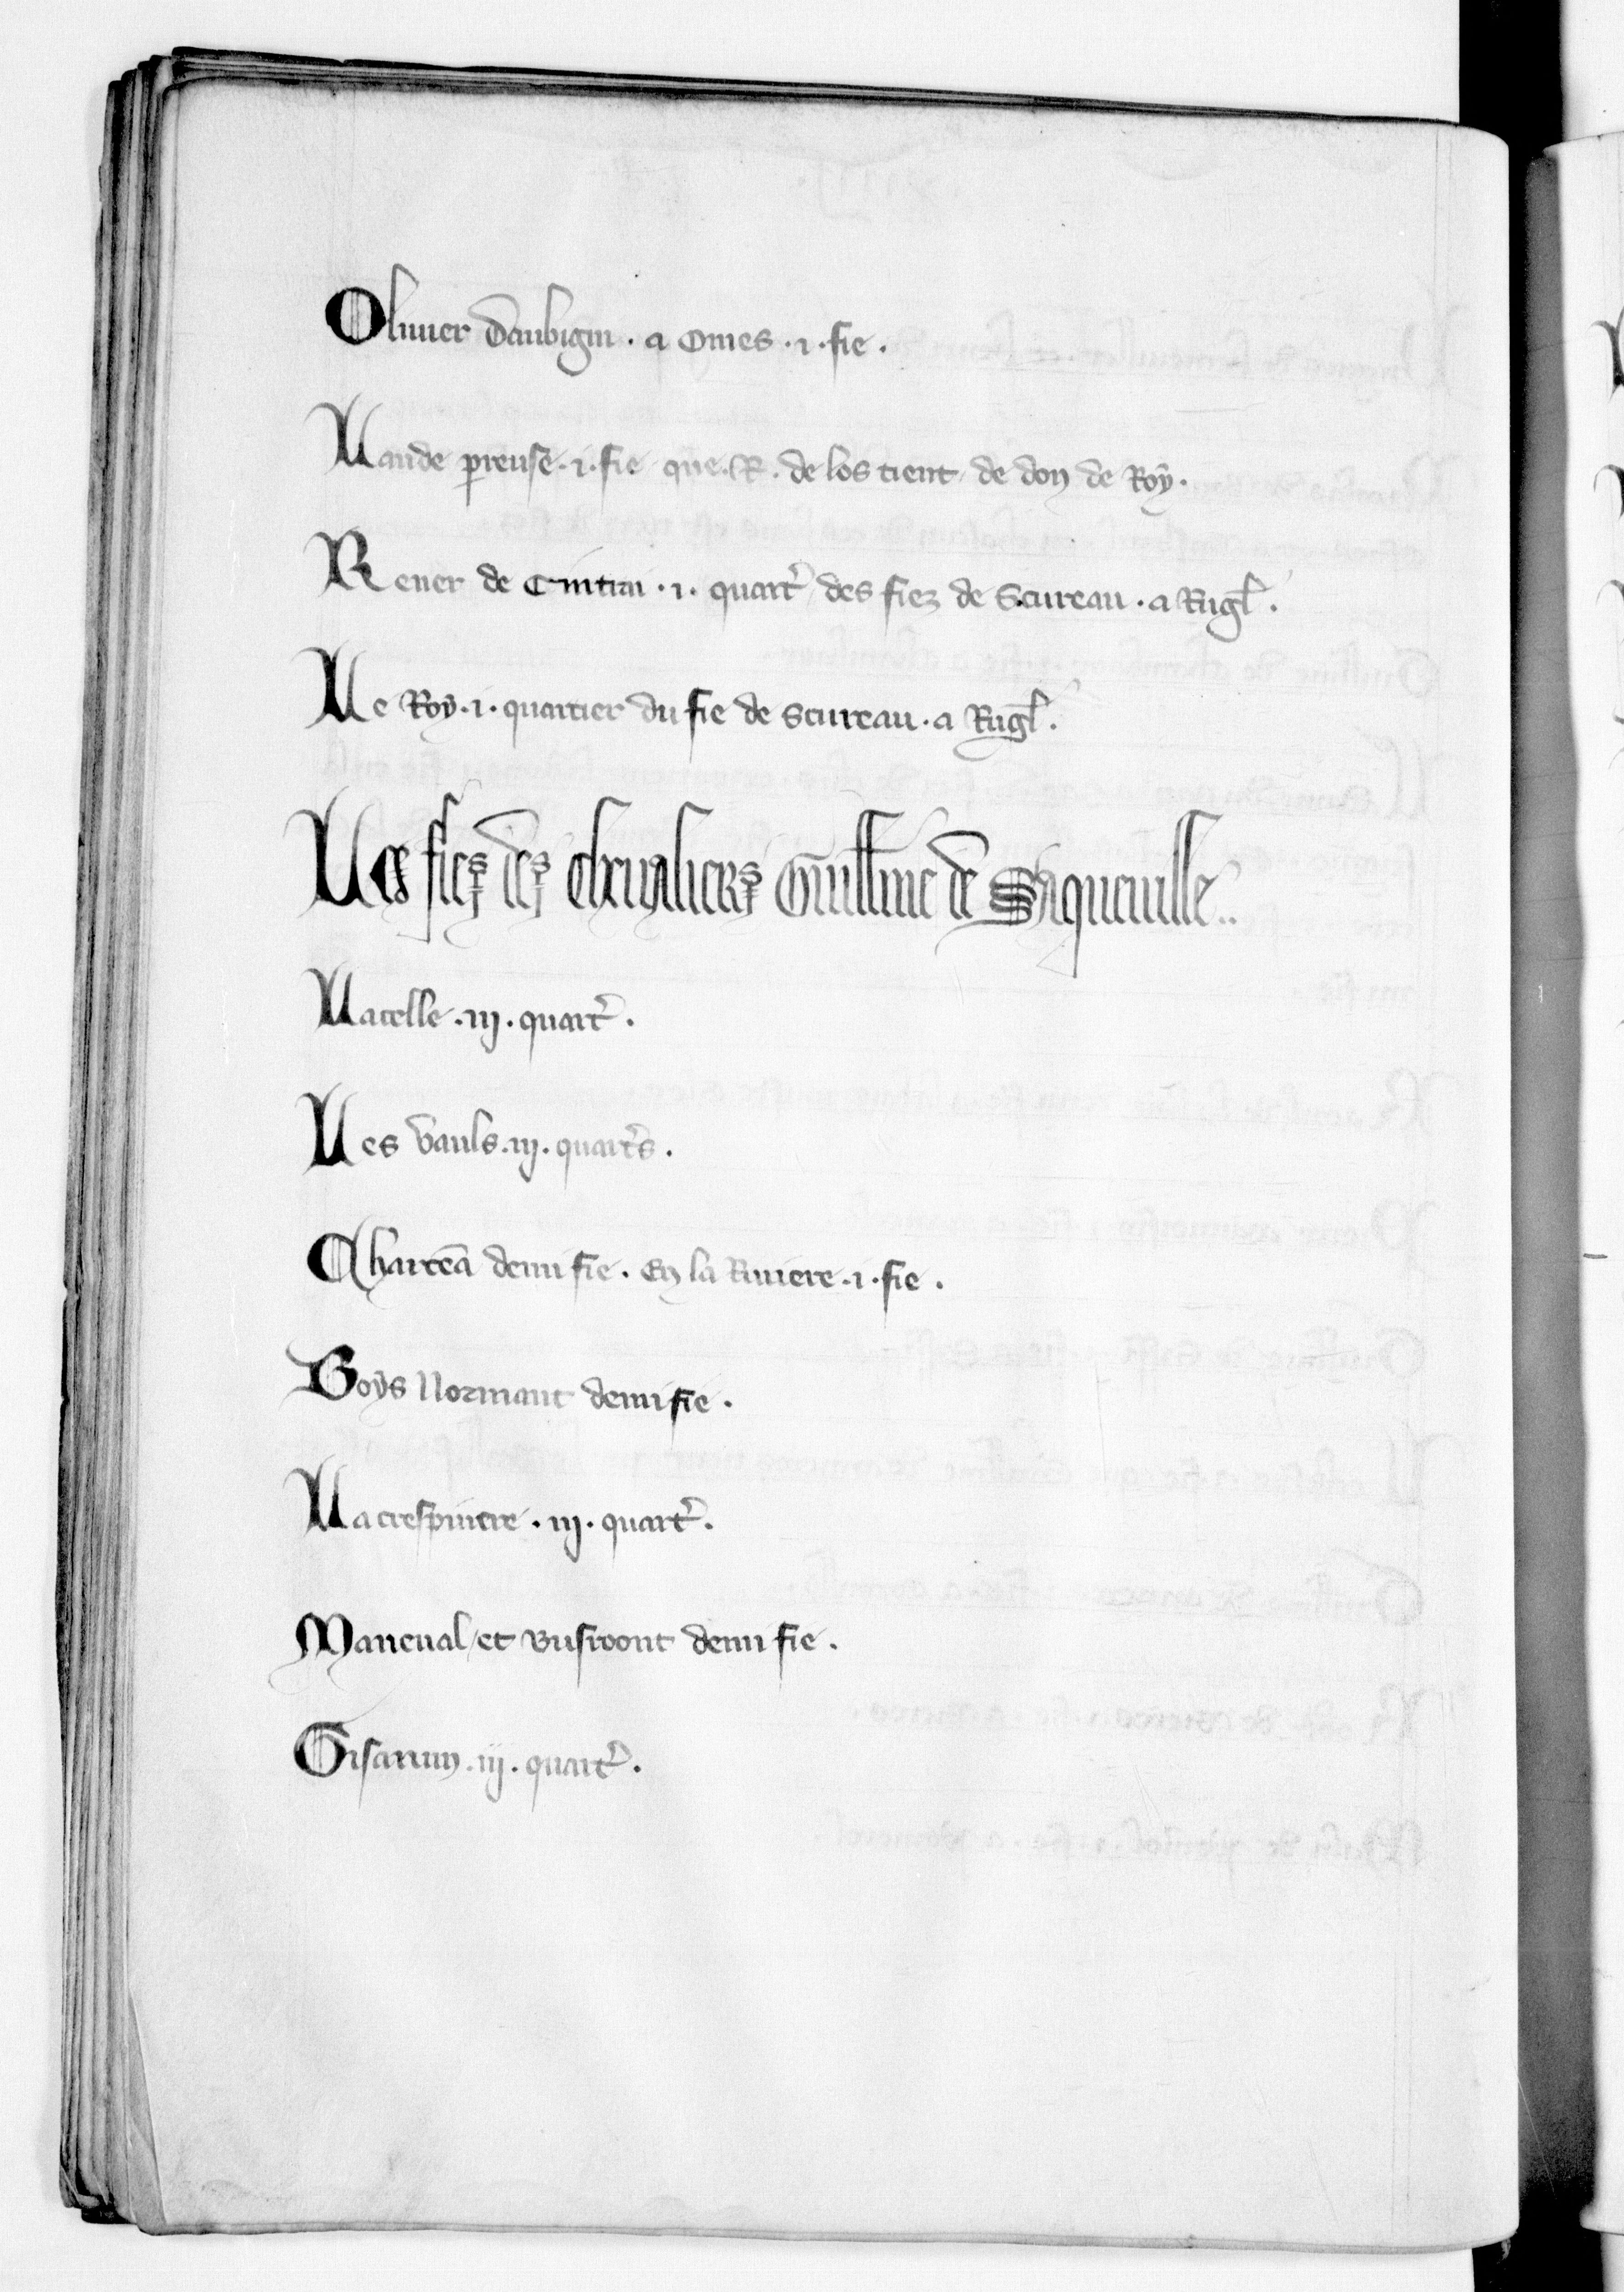 Oliuier Daubigni . a Omes . i . fie .
Lande pereuse . i . fie que . R . de los tient de don de Roy .
Rener de Cintrai . i . quart̾ des fiez de Scureau . a Rugl̃ .
Le Roy . i . quartier du fie de Scureau . a Rugl̃ .
Les fies des cheualiers Guill̃me de Saqueuille .
Lacelle . iij . quart̾ .
Les vauls . iij . quart̾s .
Chartẽa demi fie . En la Riuiere . i . fie .
Boys Normant demi fie .
Lacrespiniere . iij . quart̾ .
Maneual et demi fie .
. iij . quart̾ .